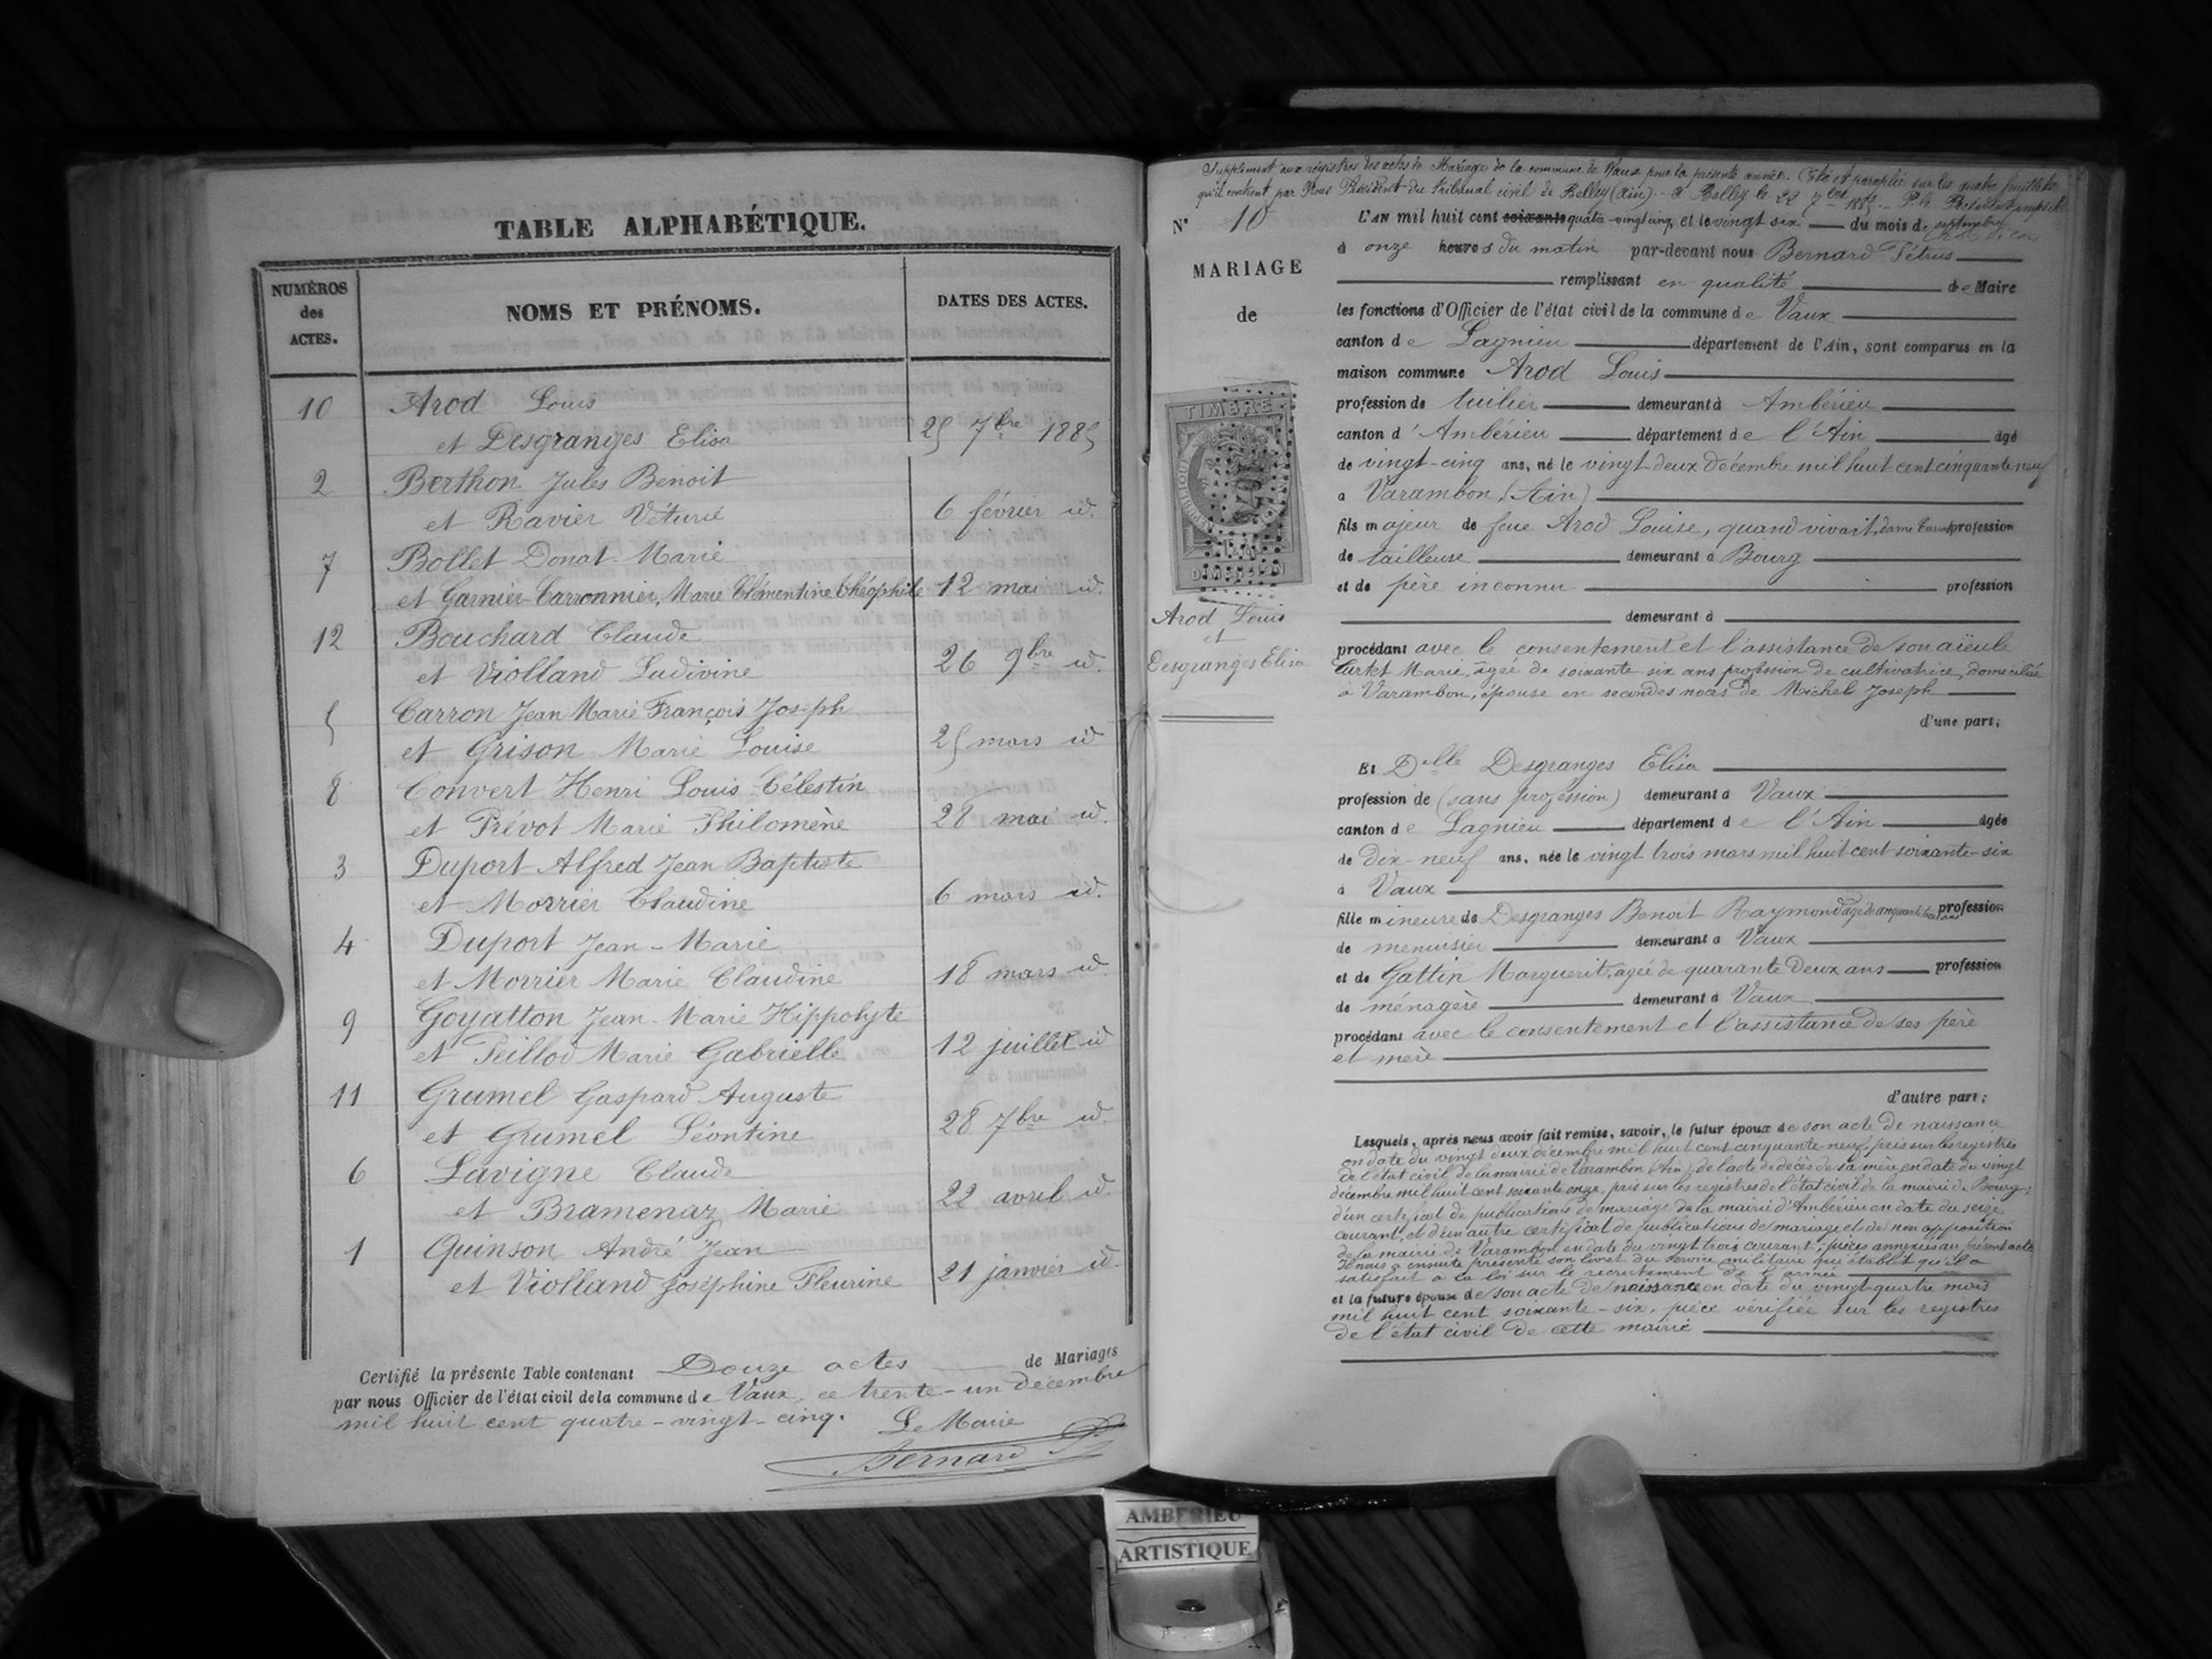 TABLE ALPHABÉTIQUE.
NUMÉROS des ACTES.
NOMS ET PRÉNOMS.
DATES DES ACTES.
10 Arod Louis
et Desgranges Elisa 25 7bre 1885
2 Berthon Jules Benoit
et Ravier Véturie 6 février id.
7 Bollet Donat-Marie
et Garnier-Carronnier, Marie Clémentine Théophile 12 mai id.
12 Bouchard Claude
et Violland Ludivine 26 9bre id.
5 Carron Jean Marie François Joseph
et Grison Marie Louise 25 mars id
8 Convert Henri Louis Célestin
et Prévot Marie Philomène 28 mai id.
3 Duport Alfred Jean Baptiste
et Morrier Claudine 6 mars id.
4 Duport Jean-Marie
et Morrier Marie Claudine 18 mars id.
9 Goyatton Jean-Marie Hippolyte
et Peillod Marie Gabrielle 12 juillet id
11 Grumel Gaspard Auguste
et Grumel Léontine 28 7bre id.
6 Lavigne Claude
et Bramenaz Marie 22 avril id.
1 Quinson André Jean
et Violland Joséphine Fleurine 21 janvier id.
Certifié la présente Table contenant Douze actes de Mariages
par nous Officier de l'état civil de la commune de Vaux, ce trente-un décembre
mil huit cent quatre-vingt-cinq. Le Maire
Bernard P
Supplément aux registres des actes de Mariage de la commune de Vaux pour la présente année. Coté et paraphé sur les quatre feuillets
qu'il contient par Nous Président du Tribunal civil de Belley (Ain). - à Belley le 22 7bre 1885.
N° 10
MARIAGE
de
TIMBRE
DIMENSION
Arod Louis
et
Desgranges Elisa
L'AN mil huit cent soixante quatre-vingt cinq, et le vingt six du mois de septembre
à onze heures du matin par-devant nous Bernard Pétrus
remplissant en qualité de Maire
les fonctions d'Officier de l'état civil de la commune de Vaux
canton de Lagnieu département de l'Ain, sont comparus en la
maison commune Arod Louis
profession de tuilier demeurant à Ambérieu
canton d'Ambérieu département de l'Ain âgé
de vingt-cinq ans, né le vingt-deux décembre mil huit cent cinquante neuf
à Varambon (Ain)
fils majeur de feue Arod Louise, quand vivait, profession
de tailleuse demeurant à Bourg
et de père inconnu profession
demeurant à
procédant avec le consentement et l'assistance de son aïeule
Curtet Marie, âgée de soixante-six ans profession de cultivatrice, domiciliée
à Varambon, épouse en secondes noces de Michel Joseph
d'une part;
Et Delle Desgranges Elisa
profession de (sans profession) demeurant à Vaux
canton de Lagnieu département de l'Ain âgée
de dix-neuf ans, née le vingt trois mars mil huit cent soixante-six
à Vaux
fille mineure de Desgranges Benoit Raymond profession
de menuisier demeurant à Vaux
et de Gattin Marguerite, agée de quarante deux ans profession
de ménagère demeurant à Vaux
procédant avec le consentement et l'assistance de ses père
et mère
d'autre part;
Lesquels, après nous avoir fait remise, savoir, le futur époux de son acte de naissance
en date du vingt deux décembre mil huit cent cinquante-neuf, pris sur les registres
de l'état civil de la mairie de Varambon (Ain), de l'acte de décès de sa mère en date du vingt
décembre mil huit cent soixante onze, pris sur les registres de l'état civil de la mairie de Bourg;
d'un certificat de publications de mariage de la mairie d'Ambérieu en date du seize
courant, et d'un autre certificat de publications de mariage et de non opposition
de la mairie de Varambon en date du vingt trois courant, pièces annexées au présent acte
Il nous a ensuite présenté son livret du service militaire qui établit qu'il a
satisfait à la loi sur le recrutement de l'armée
et la future épouse de son acte de naissance en date du vingt-quatre mars
mil huit cent soixante-six, pièce vérifiée sur les registres
de l'état civil de cette mairie
AMBERIEU
ARTISTIQUE